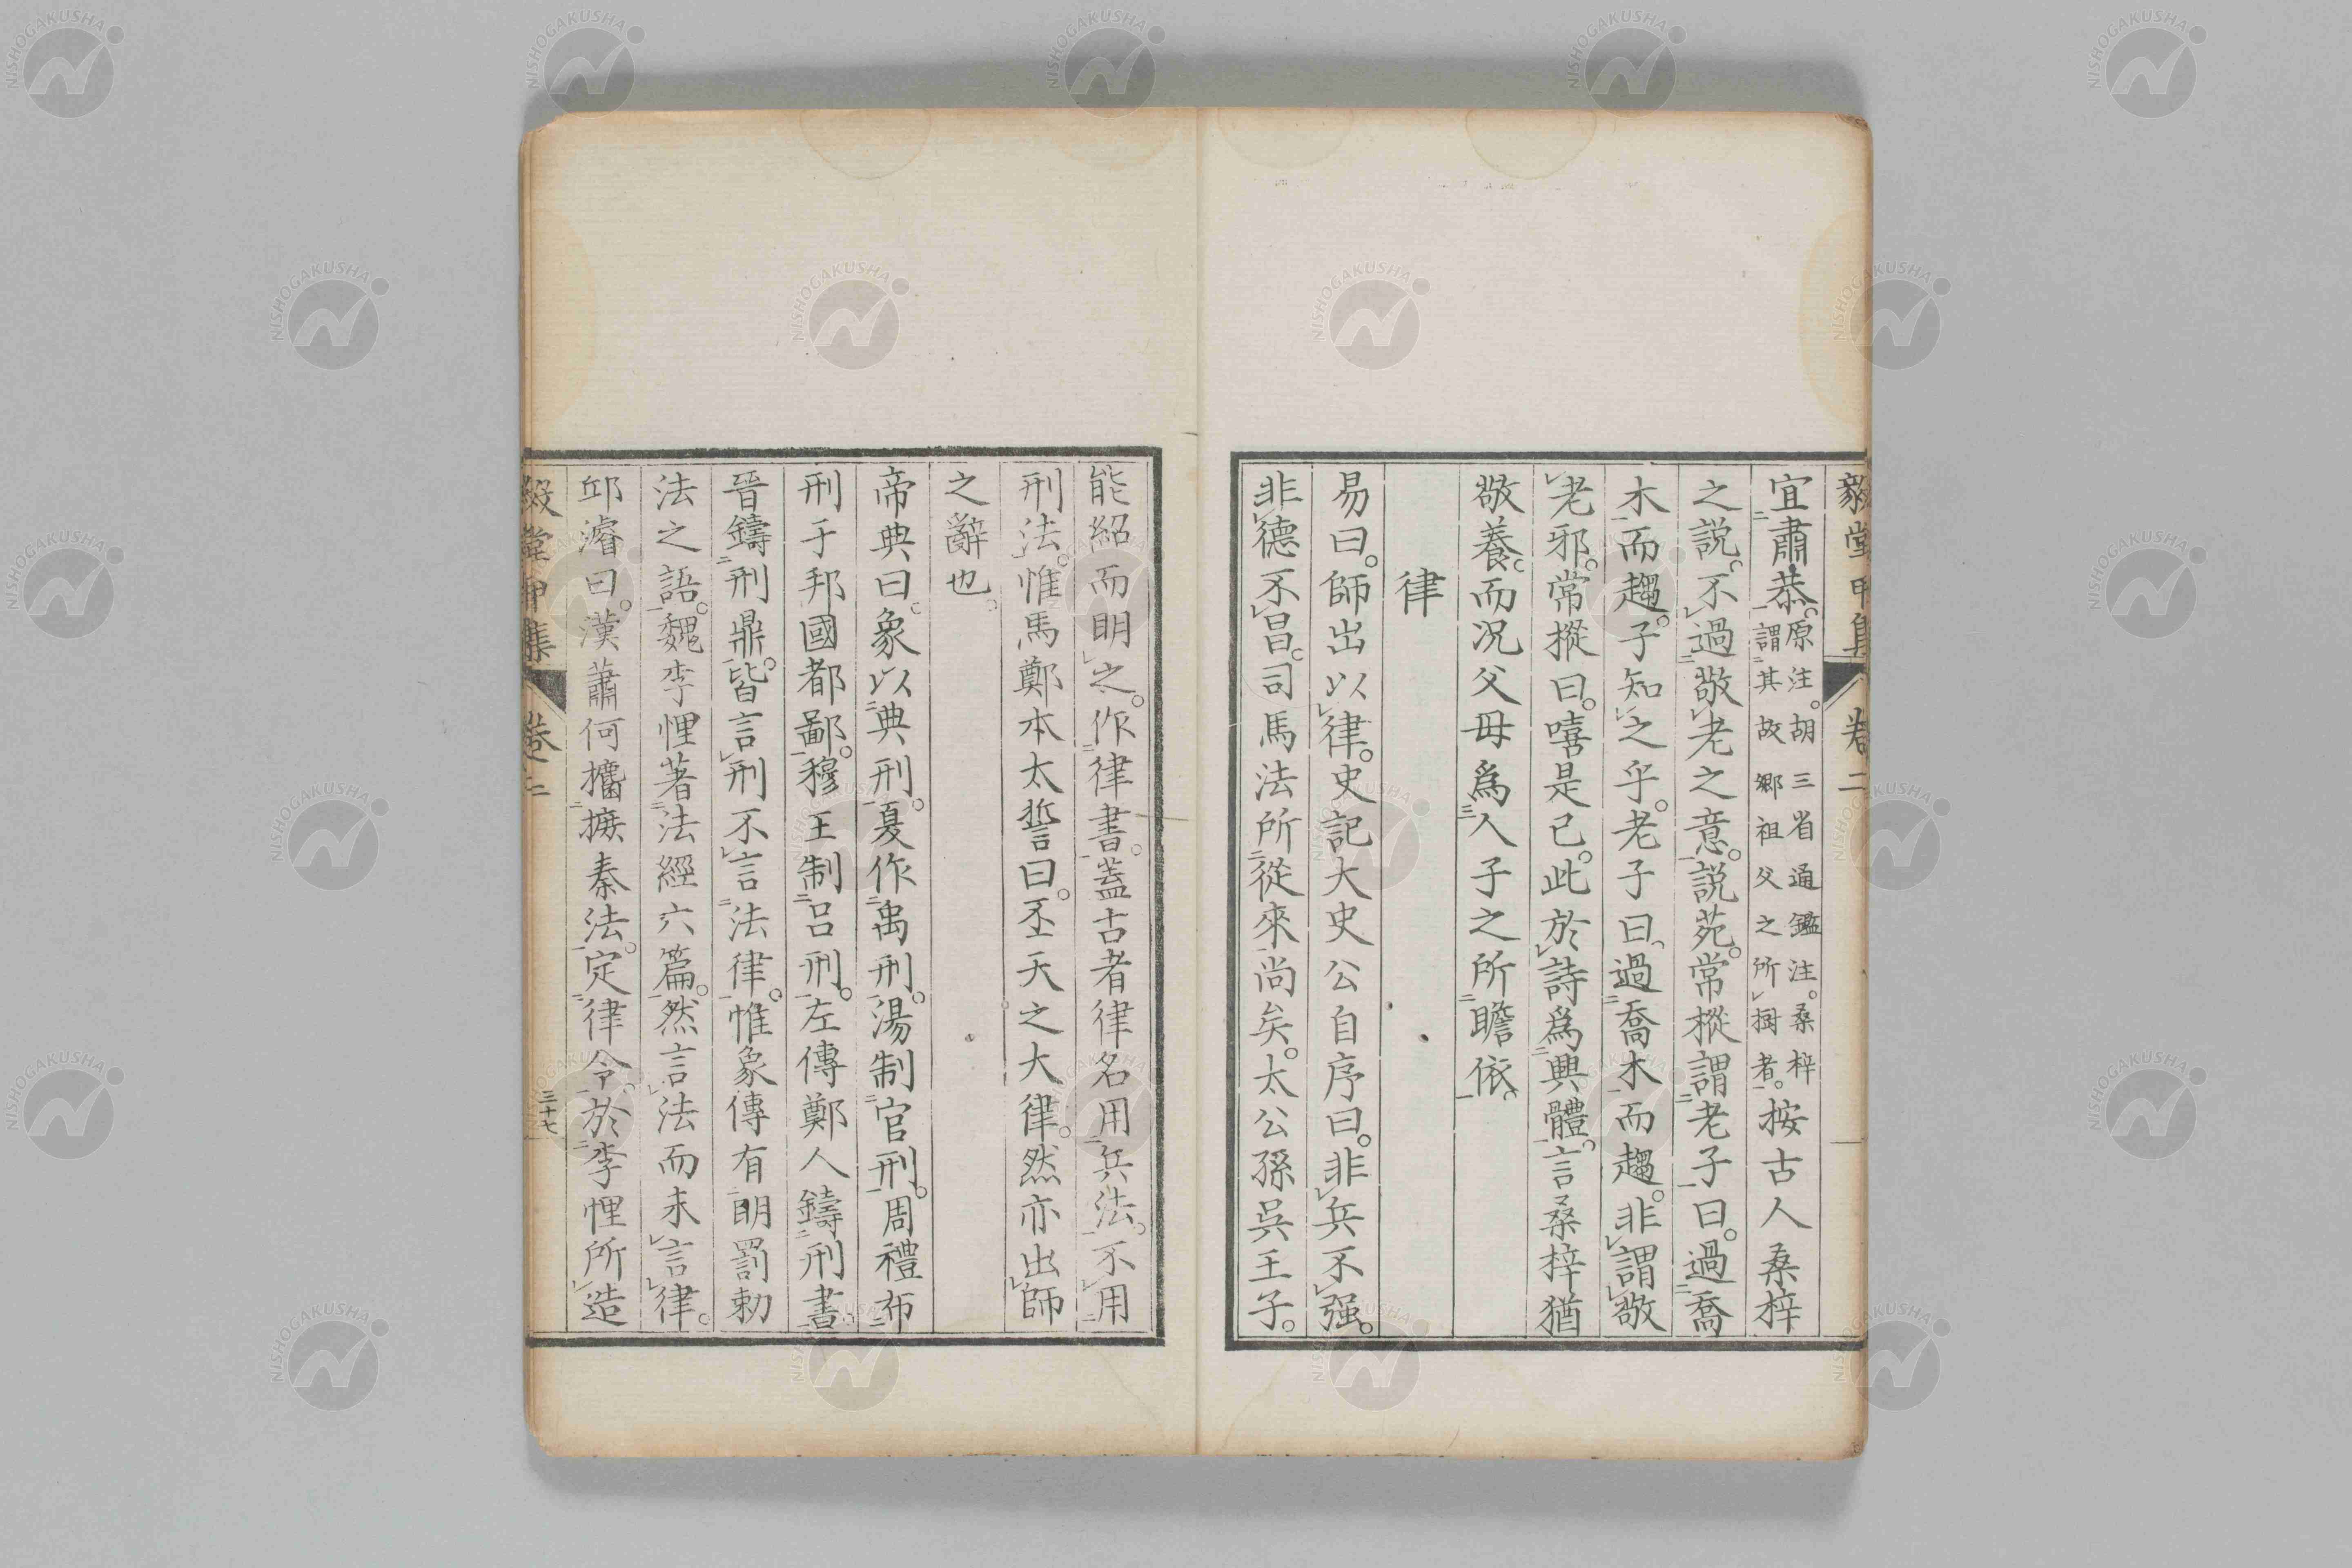 毅堂甲集 卷二
宜肅恭。原注。胡三省通鑑注。桑梓謂其故鄉祖父之所樹者。按古人桑梓
之説。不過敬老之意。説苑。常摐謂老子曰。過喬
木而趨。子知之乎。老子曰、過喬木而趨。非謂敬
老邪。常摐曰。嘻是已。此於詩爲興體。言桑梓猶
敬養。而况父母爲人子之所瞻依。
律
易曰。師出以律。史記大史公自序曰。非兵不强。
非德不昌。司馬法所從來尚矣。太公孫吳王子。
能紹而明之。作律書。蓋古者律名用兵法。不用
刑法。惟馬鄭本太誓曰。丕天之大律。然亦出師
之辭也。
帝典曰。象以典刑。夏作禹刑。湯制官刑。周禮布
刑于邦國都鄙。穆王制呂刑。左傳鄭人鑄刑書。
晉鑄刑鼎。皆言刑不言法律。惟象傳有明罰勅
法之語。魏李悝著法經六篇。然言法而未言律。
邱濬曰。漢蕭何攟摭秦法。定律令。於李悝所造
毅堂甲集 卷二 三十七